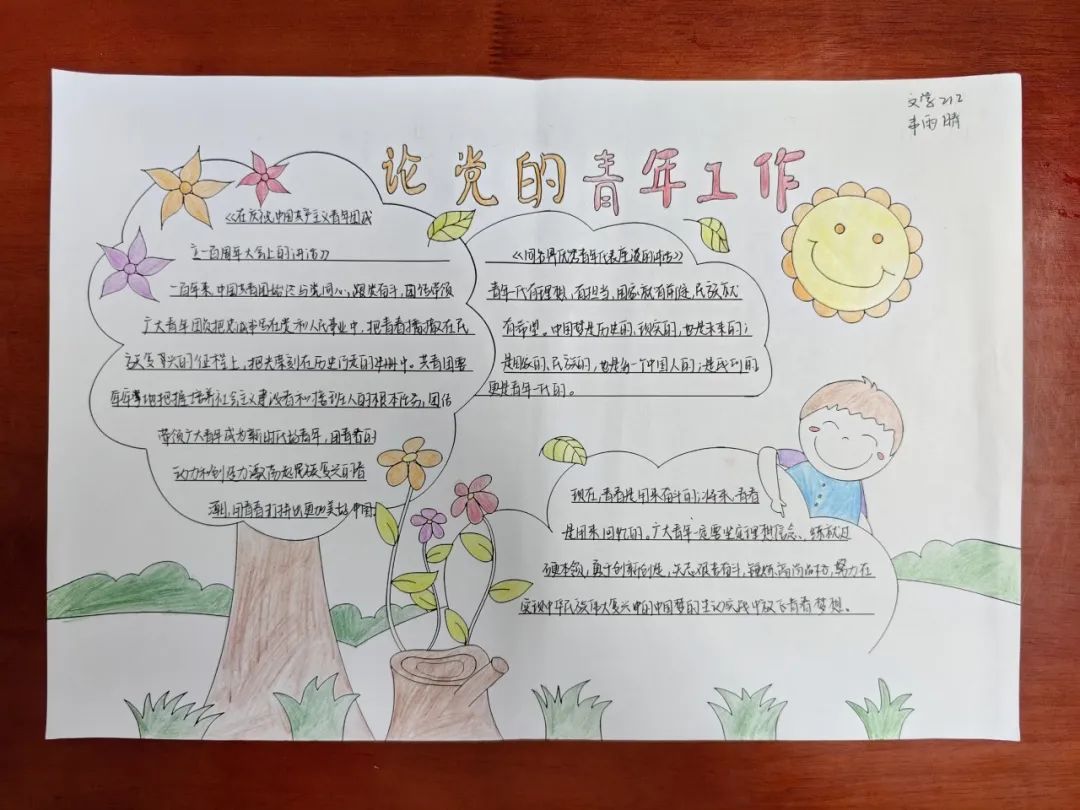 文学212
韦雨晴
论党的青年工作
《在庆祝中国共产主义青年团成
立一百周年大会上的讲话》
一百年来,中国共青团始终与党同心、跟党奋斗,团结带领
广大青年团员把忠诚书写在党和人民事业中,把青春播撒在民
族复兴的征程上,把光荣刻在历史行进的史册中。共青团要
牢牢掌握把握培养社会主义建设者和接班人的根本任务,团结
带领广大青年成为新时代好青年,用青春的
动力和创造力激荡起民族复兴的春
潮,用青春打拼出更加美好中国
《同各界优秀青年代表座谈时讲话》
青年一代有理想,有担当,国家就有前途,民族就
有希望。中国梦是历史的,现实的,也是未来的;
是国家的、民族的,也是每一个中国人的;是我们的,
更是青年一代的。
现在,青春是用来奋斗的;将来,青春
是用来回忆的。广大青年一定要坚定理想信念、练就过
硬本领,勇于创新创造,矢志艰苦奋斗,锤炼高尚品格,努力在
实现中华民族伟大复兴中的中国梦的生动实践中放飞青春梦想。